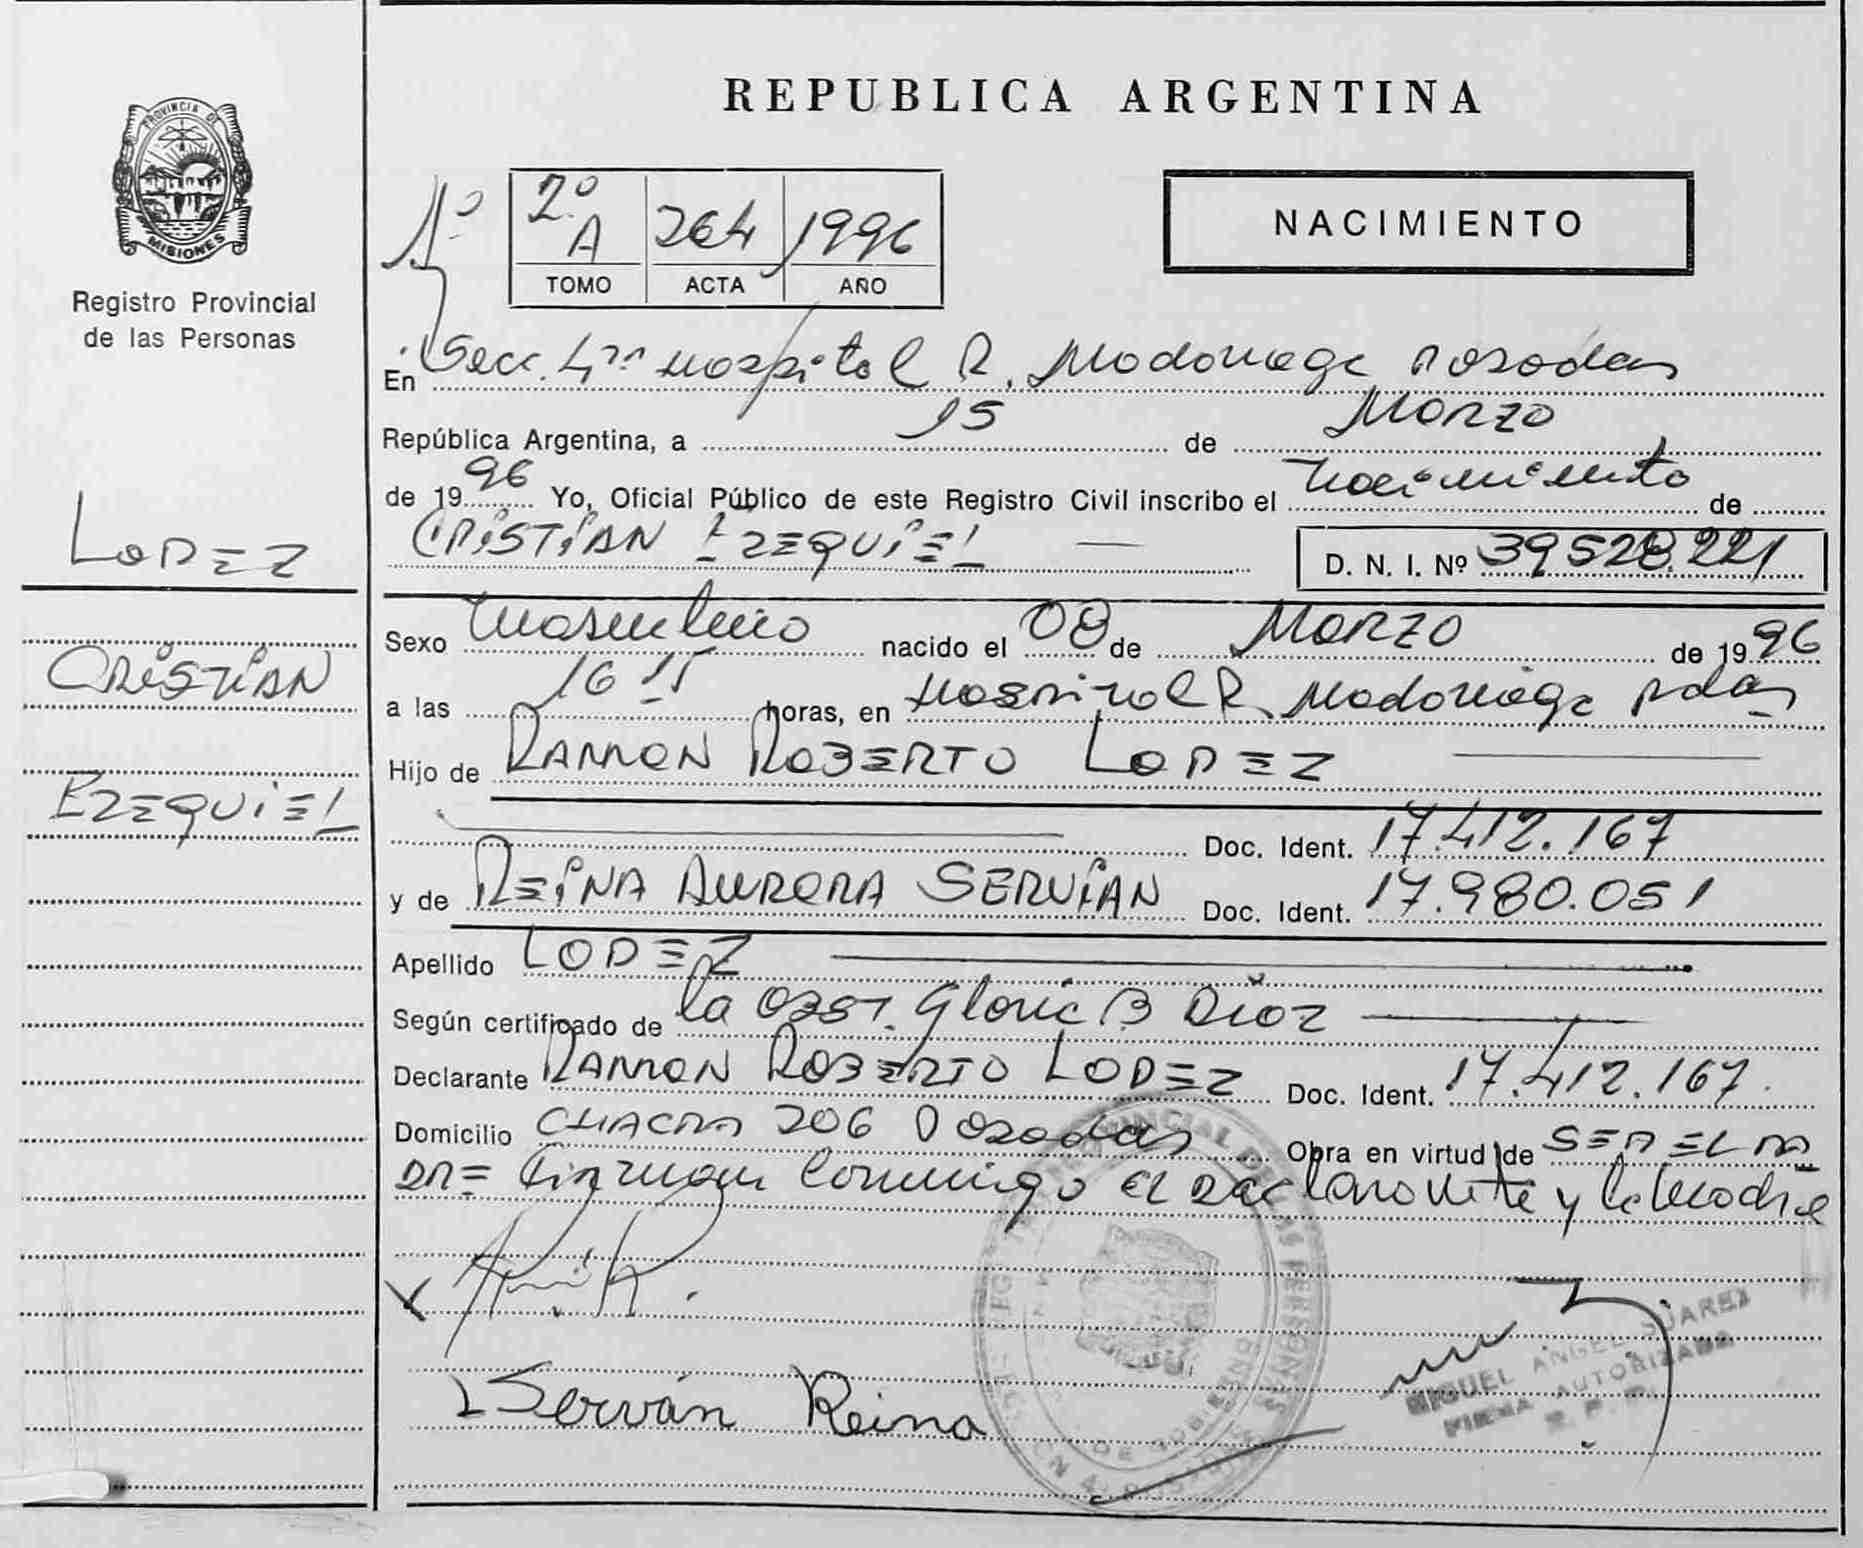 PROVINCIA DE
MISIONES
Registro Provincial
de las Personas
LOPEZ
CRISTIAN
EZEQUIEL
REPUBLICA ARGENTINA
NACIMIENTO
1º 2º A 264 1996
TOMO ACTA AÑO
En Secc. 4ta Hospital R. Madariaga Posadas
República Argentina, a 15 de Marzo
de 1996 Yo, Oficial Público de este Registro Civil inscribo el nacimiento de
CRISTIAN EZEQUIEL — D. N. I. Nº 39528.221
Sexo Masculino nacido el 08 de Marzo de 1996
a las 16 15 horas, en Hospital R. Madariaga Pdas
Hijo de RAMON ROBERTO LOPEZ
Doc. Ident. 17.412.167
y de REINA AURORA SERVIAN Doc. Ident. 17.980.051
Apellido LOPEZ
Según certificado de la Obst. Gloria B Diaz
Declarante RAMON ROBERTO LOPEZ Doc. Ident. 17.412.167.
Domicilio CHACRA 206 Posadas Obra en virtud de SER EL PA
DRE Firman Conmigo el Declarante y la Madre
Serván Reina
MIGUEL ANGEL SUAREZ
FIRMA AUTORIZADA
R. P. P.